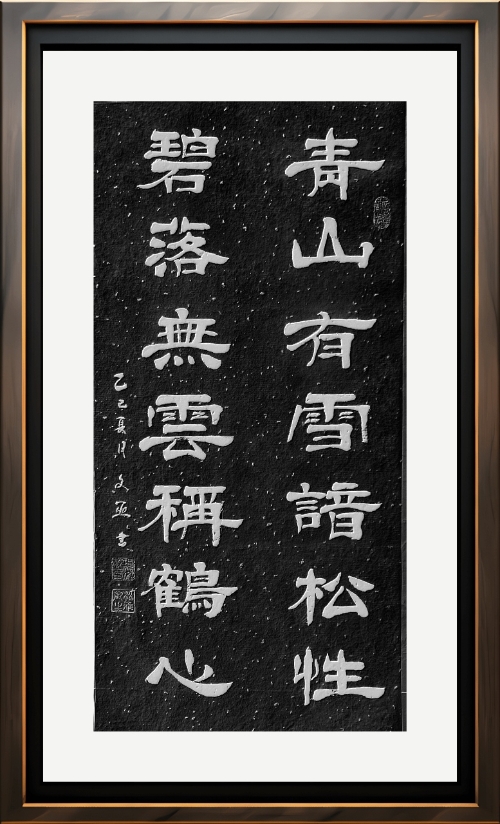 青山有雪諳松性
碧落無雲稱鶴心
乙巳夏月文
書